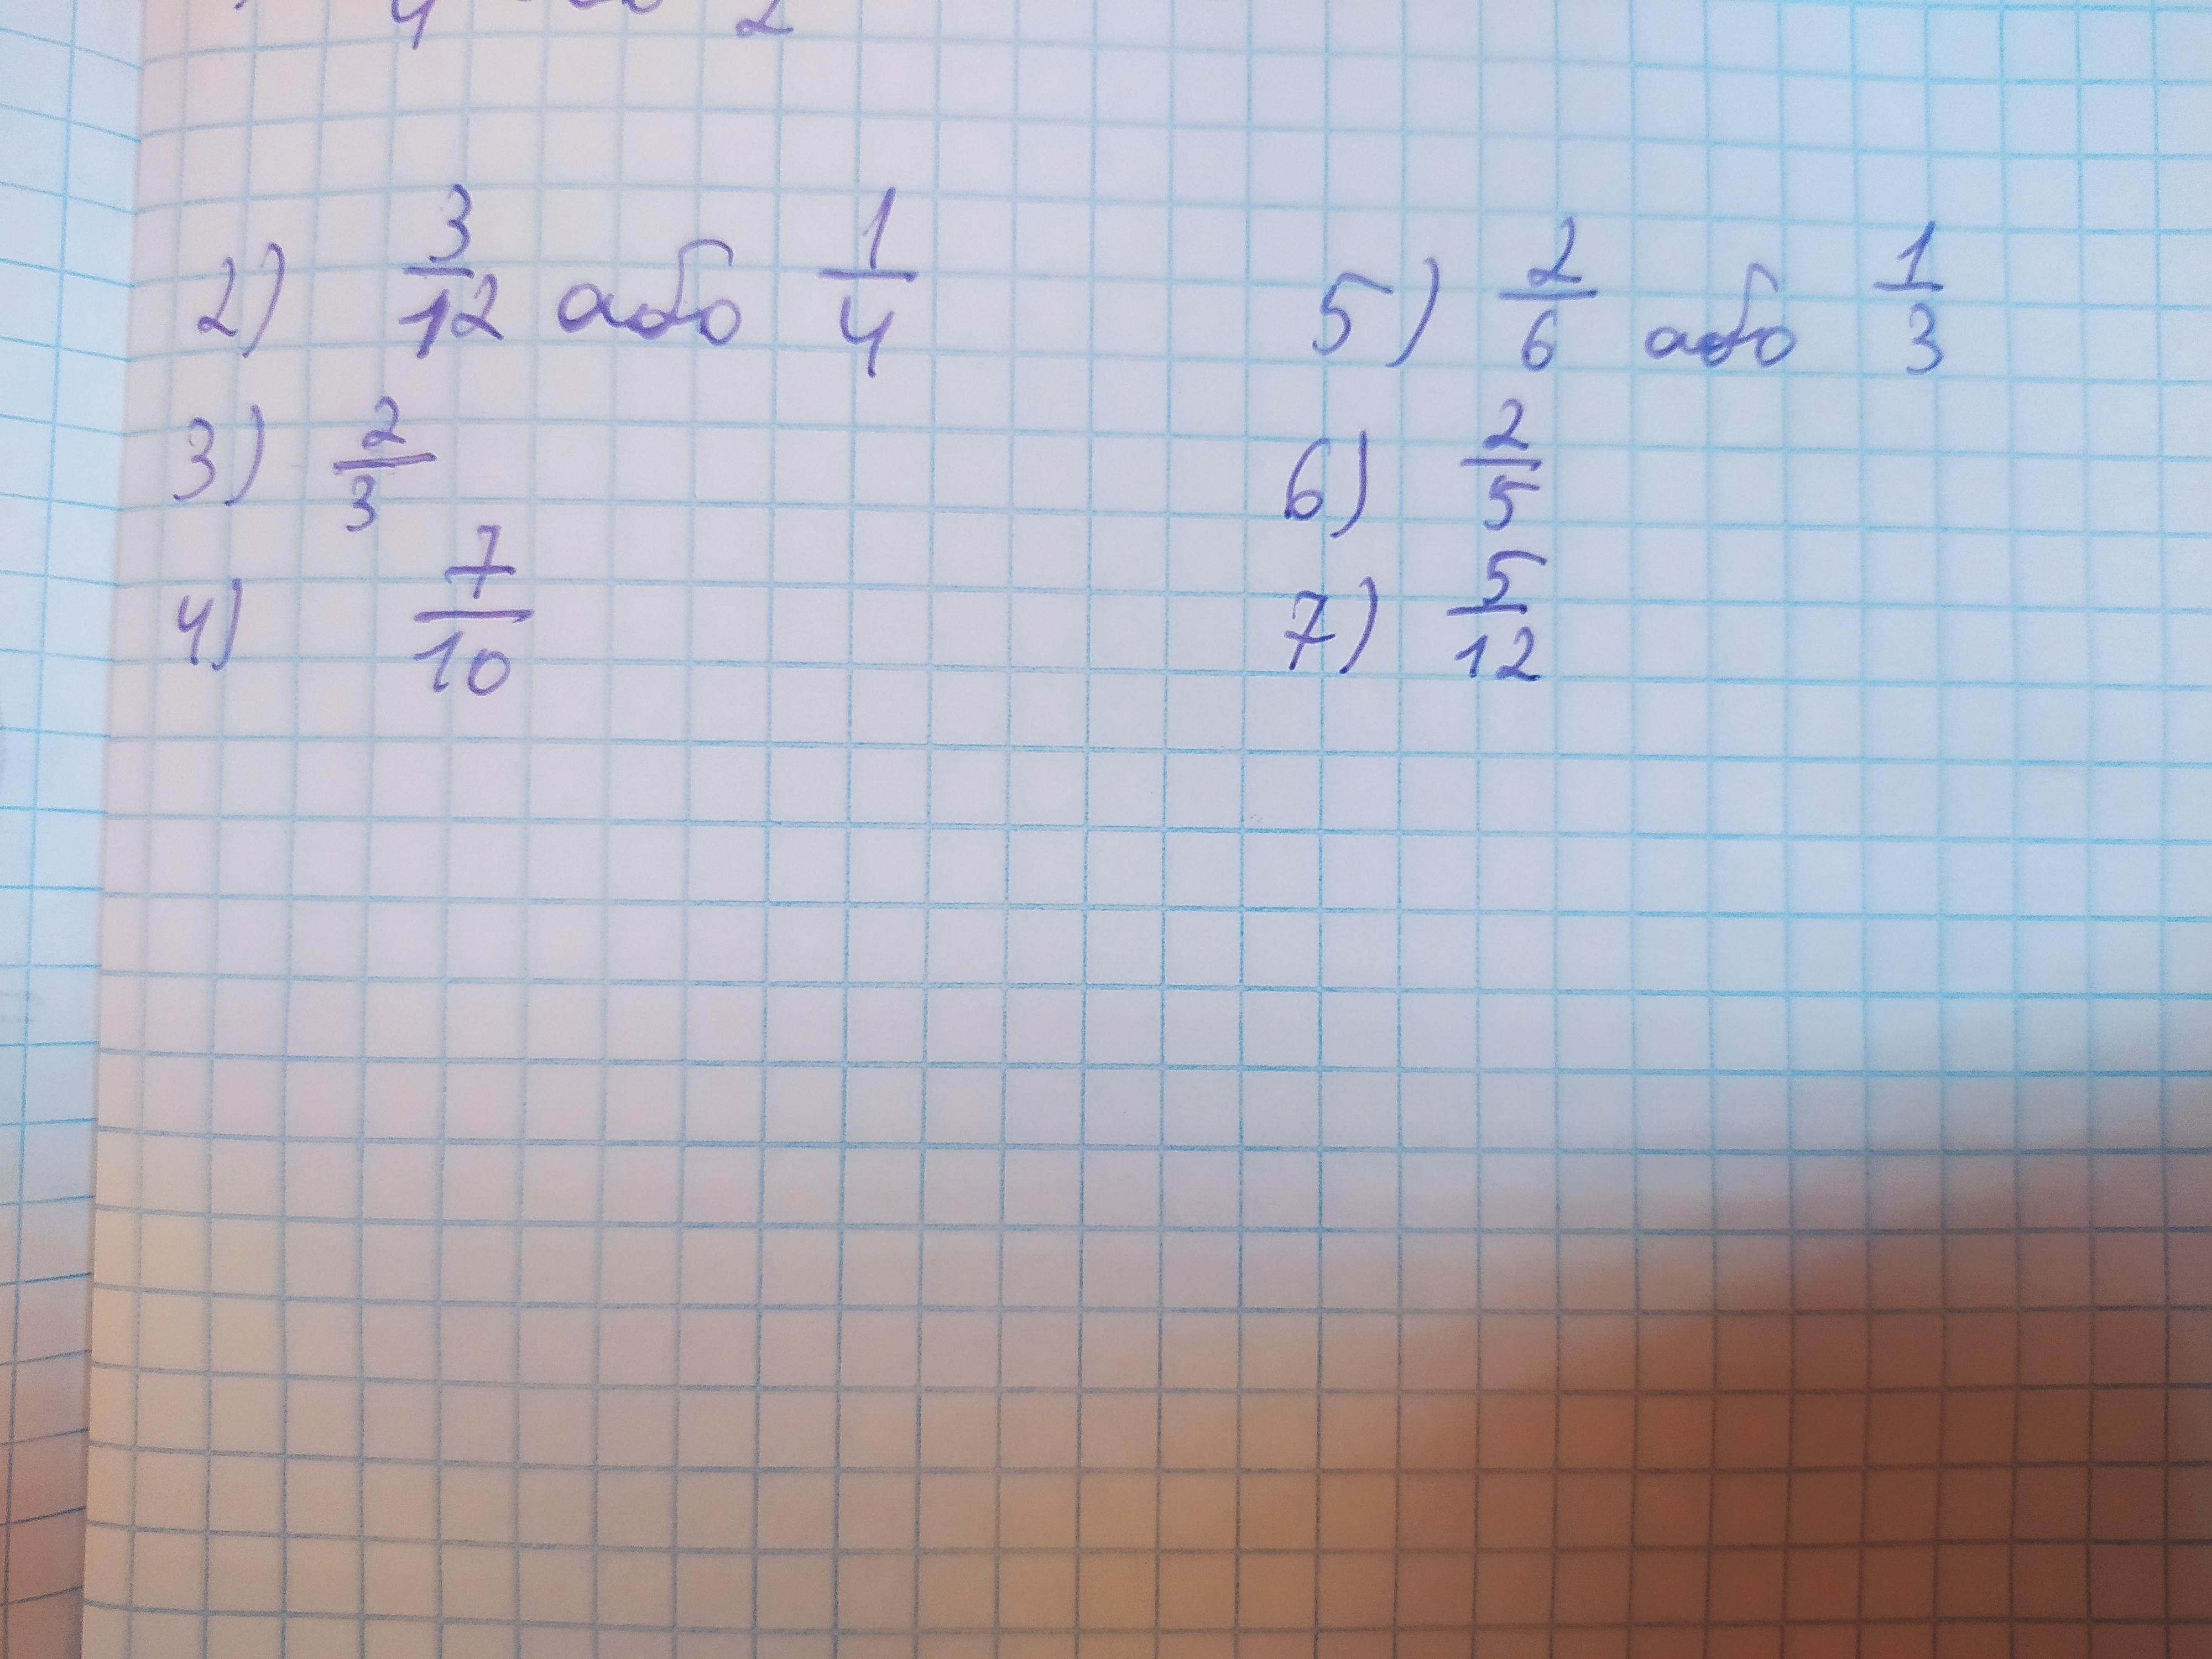 4 2
2) 3/12 або 1/4
3) 2/3
4) 7/10
5) 2/6 або 1/3
6) 2/5
7) 5/12